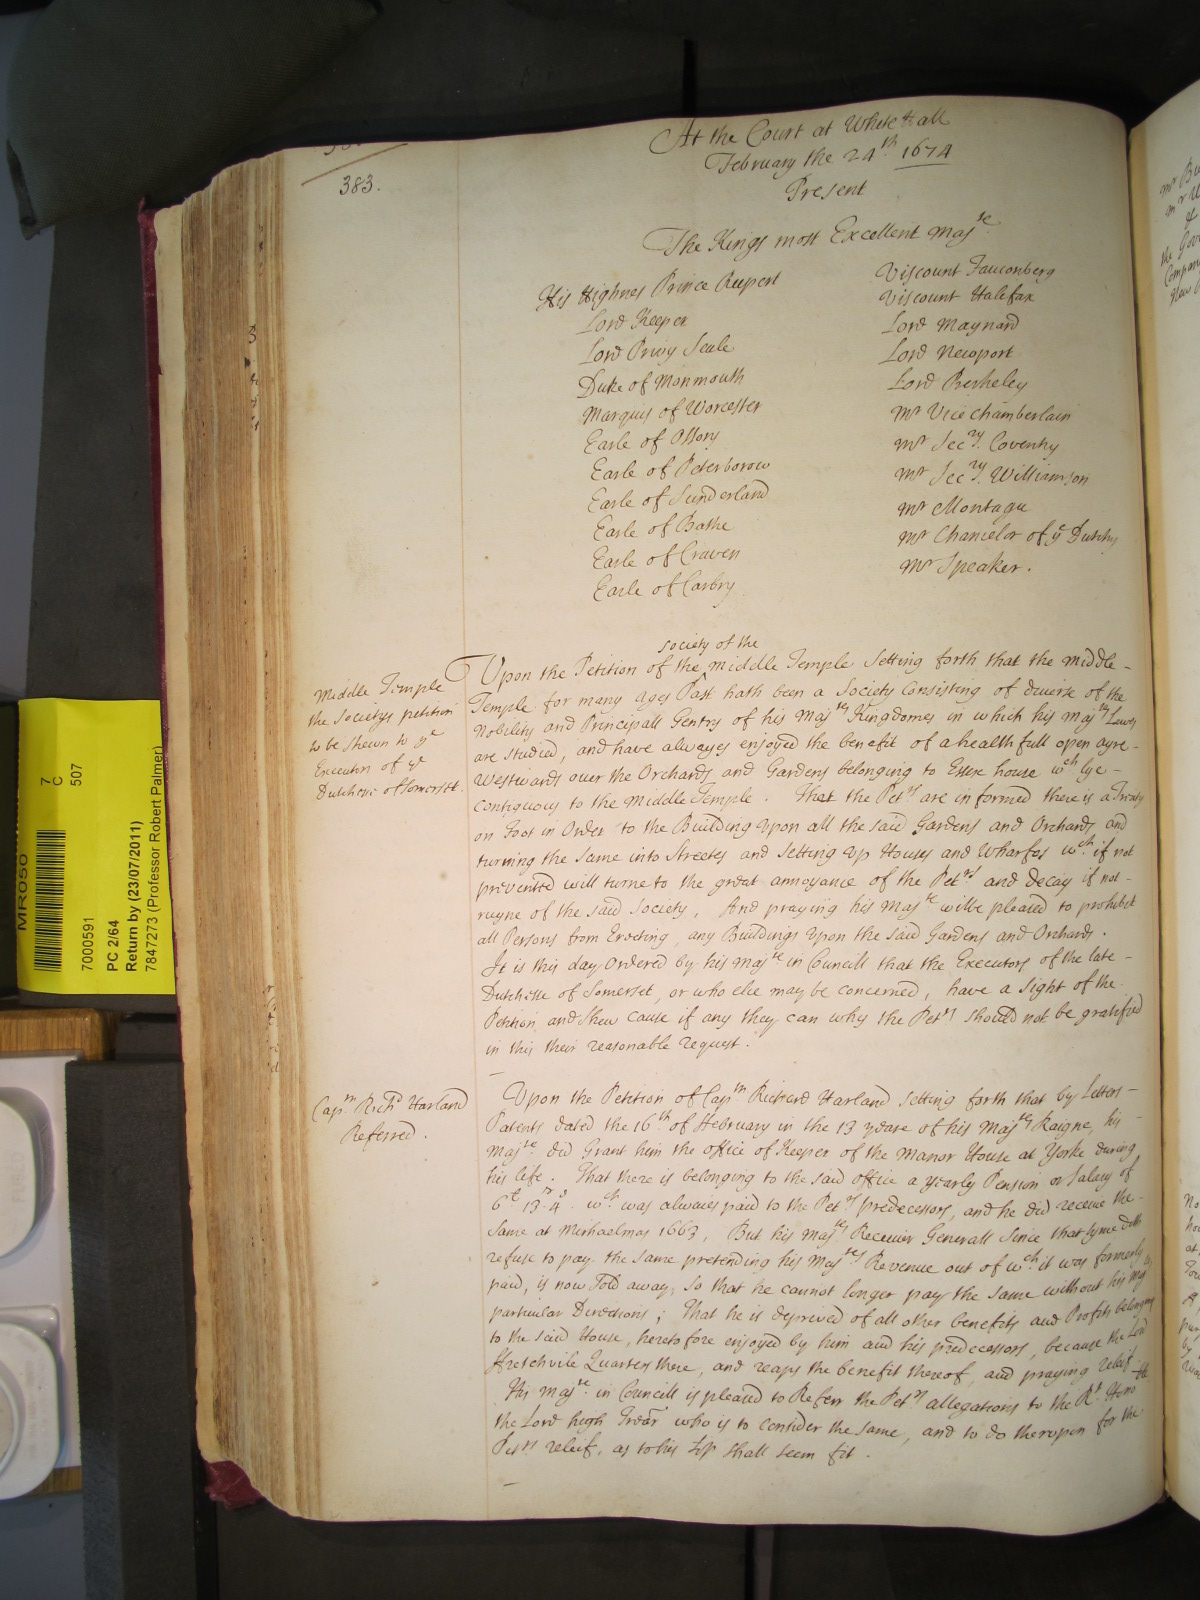 383.
At the Court at White Hall
February the 24th. 1674
Present
The Kings most Excellent Majte
His Highnes Prince Rupert
Lord Keeper
Lord Privy Seale
Duke of Monmouth
Marquis of Worcester
Earle of Ossory
Earle of Peterborow
Earle of Sunderland
Earle of Bathe
Earle of Craven
Earle of Carbry
Viscount Fauconberg
Viscount Halifax
Lord Maynard
Lord Newport
Lord Berkeley
Mr Vice Chamberlain
Mr Secry. Coventry
Mr Secry. Williamson
Mr Montagu
Mr Chancelor of ye Dutchy
Mr Speaker.
Middle Temple
the Societys petition
to be shewn to ye
Executors of ye
Dutchesse of Somerset.
society of the
Upon the Petition of the Middle Temple Setting forth that the Middle-
Temple for many ages Past hath been a Society Consisting of diverse of the
Nobility and Principall Gentry of his Majtes Kingdomes in which his Majtes Lawes
are Studied, and have alwayes enjoyed the benefit of a healthfull open ayre-
Westwards over the Orchards and Gardens belonging to Essex house wch lye-
contiguous to the Middle Temple. That the Petrs are informed there is a Treaty
on Foot in Order to the Building Upon all the said Gardens and Orchards and
turning the same into Streetes and Setting Up Houses and Wharfes wch if not
prevented will turne to the great annoyance of the Petrs and decay if not-
ruyne of the said Society, And praying his Majte wilbe pleased to prohibit
all Persons from Erecting any Buildings Upon the said Gardens and Orchards.
It is this day Ordered by his Majte in Councill that the Executors of the late-
Dutchesse of Somerset, or who else may be concerned, have a Sight of the
Petition, and Shew cause if any they can why the Petrs Should not be gratified
in this their reasonable request.
Captn Richd Harland
Referred.
Upon the Petition of Captn Richard Harland Setting forth that by Letters-
Patents dated the 16th of February in the 13 yeare of his Majtes Raigne, his
Majte did Grant him the office of Keeper of the Manor House at Yorke during
his life. That there is belonging to the said office a yearly Pension or Salary of
6l 13s 4d wch was alwaies paid to the Petrs predecessors, and he did receive the-
Same at Michaelmas 1663, But his Majtes Receiver Generall Since that tyme doth
refuse to pay the same pretending his Majtes Revenue out of wch it was formerly
paid, is now Sold away, So that he cannot longer pay the same without his Majtes
particular Directions; That he is deprived of all other benefits and Profits belonging
to the said House, heretofore enjoyed by him and his predecessors, because the Lord
Fretchvile Quarters there, and reaps the benefit thereof, and praying releif
His Majte in Councill is pleased to Referr the Petrs allegations to the Rt. Honoble
the Lord high Trear who is to consider the same, and to do therupon for the
Petrs releif, as to his Lop shall seem fit.
MR050
7
C
507
7000591
PC 2/64
Return by (23/07/2011)
7847273 (Professor Robert Palmer)